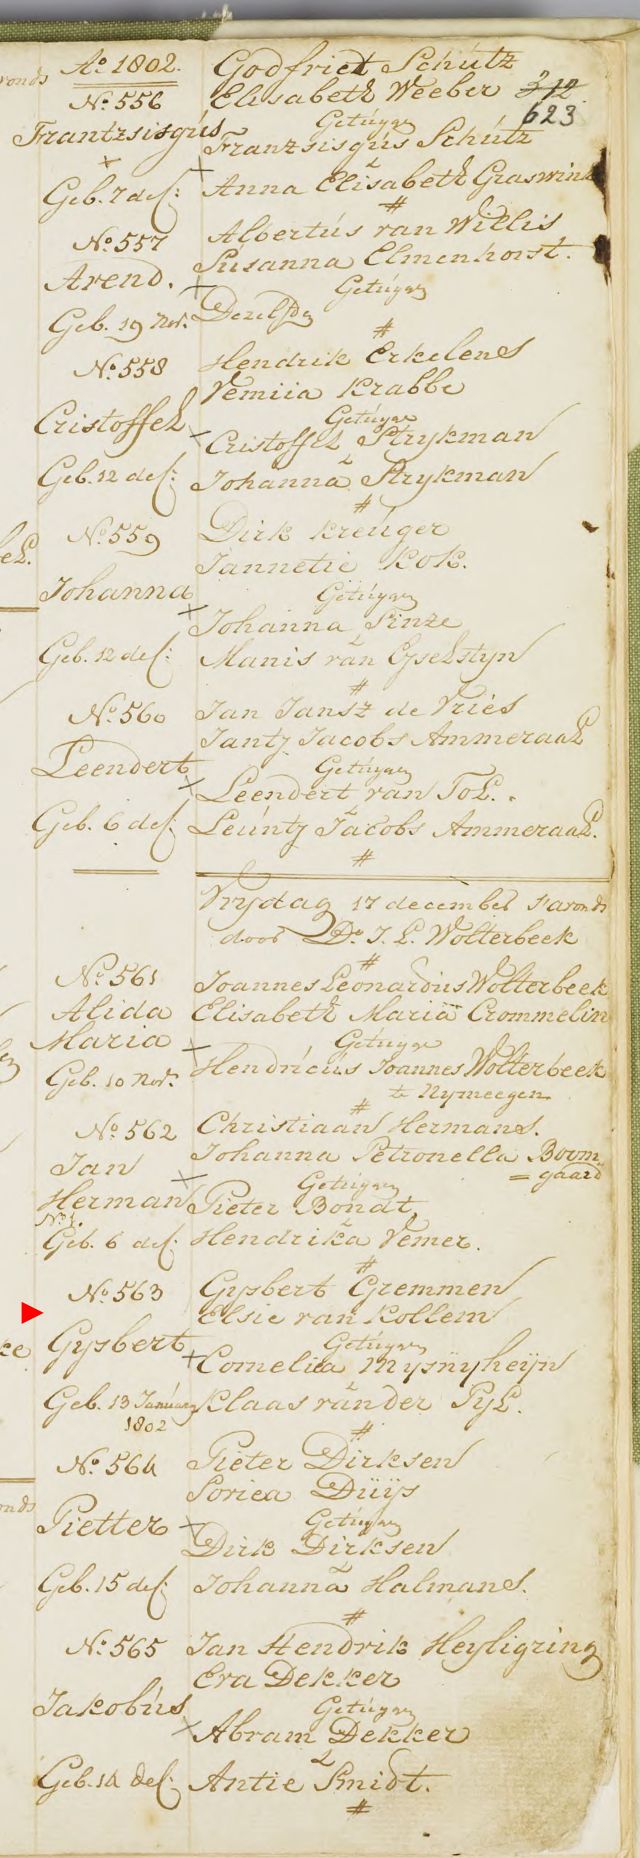 Ao 1802.
No 556
Godfriet Schútz
Elisabeth Weeber
623
Getuijgen
Frantzsisgús
Franzsisgús Schútz
&
Geb. 7 des:
Anna Elisabeth Graswinkel
#
No 557
Albertús van Willis
Susanna Elmenhorst.
Arend.
Getúgen
Geb. 19 nov.
Dezelfde
#
No 558
Hendrik Erkelens
Vemiia Krabbe
Cristoffel
Getúgen
Cristoffel Strykman
&
Geb. 12 des:
Johanna Strykman
#
No 559
Dirk Kreuger
Jannetie Kok.
Johanna
Getúgen
Johanna Sinze
&
Geb. 12 des:
Manis van Eyselstyn
#
No 560
Jan Jansz de Vries
Jantj Jacobs Ammeraal
Leendert
Getúgen
Leendert van Tol.
&
Geb. 6 des.
Leúntj Jacobs Ammeraal.
#
Vrydag 17 december savonds
door Ds J. L. Wolterbeek
#
No 561
Joannes Leonardus Wolterbeek
Alida
Elisabeth Maria Crommelin
Maria
Getuige
Hendricús Joannes Wolterbeek
Geb. 10 Nov:
te Nymeegen
#
No 562
Christiaan Hermans.
Johanna Petronella Boom
= gaard
Jan
Herman
Getúgen
Pieter Bondt
No 1.
&
Geb. 6 des:
Hendrika Vemer.
#
No 563
Gysbert Gremmen
Elsie van Kollem
Gysbert
Getúgen
Cornelia Mysnyheyn
&
Geb. 13 Janúary
1802
Klaas van der Pyl.
#
No 564
Pieter Dirksen
Soriea Duijs
Pietter
Getúgen
Dirk Dirksen
&
Geb. 15 des:
Johanna Halmans.
#
No 565
Jan Hendrik Heyligring
Eva Dekker
Jakobús
Getúgen
Abram Dekker
&
Geb. 14 des:
Antie Smidt.
#